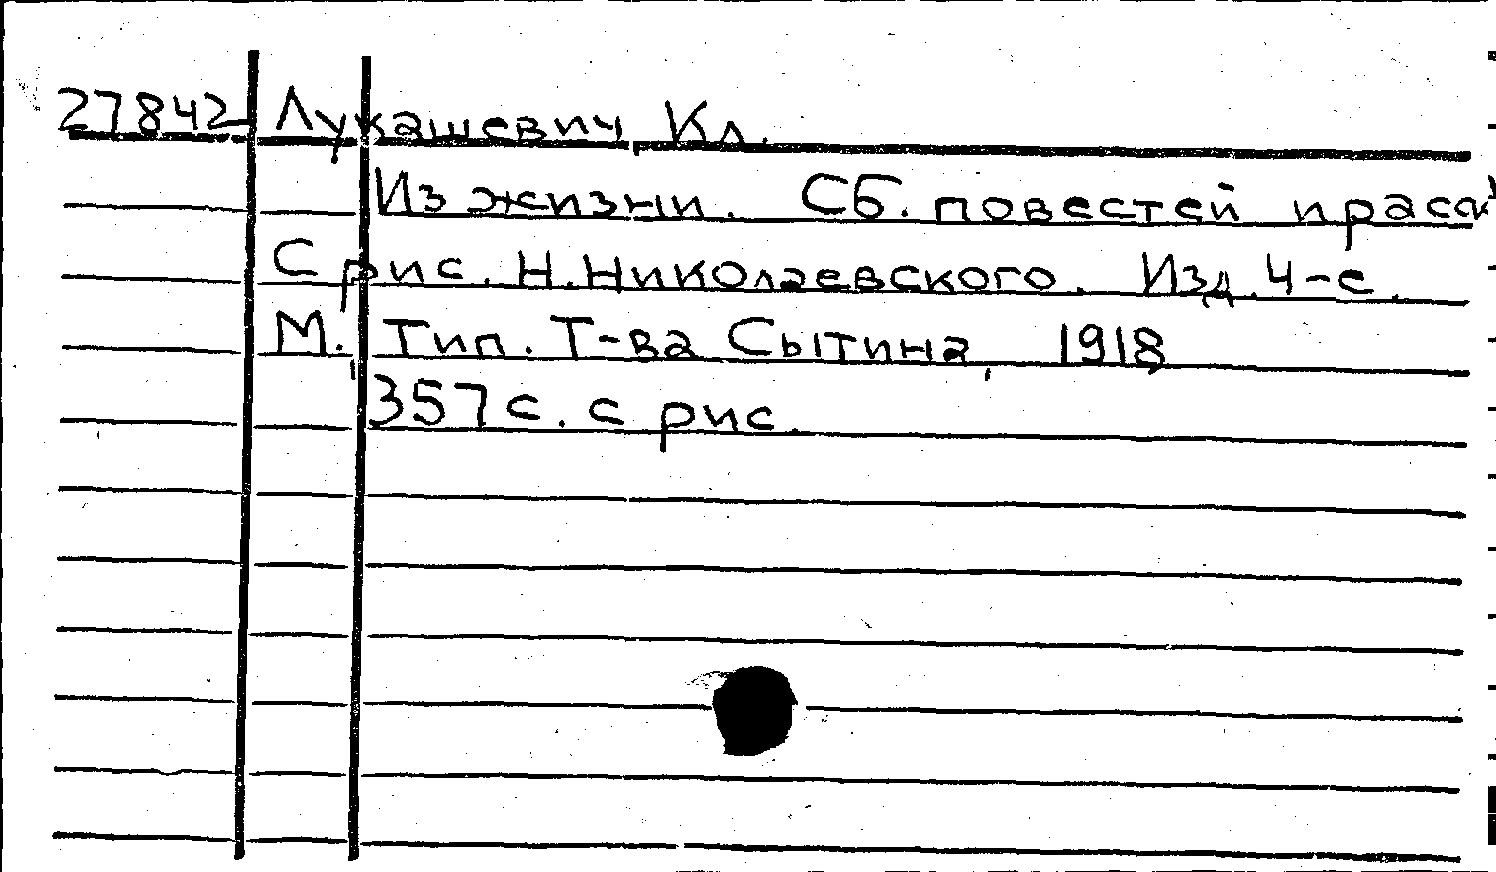 27842 Лукашевич Кл.
Из жизни. Сб. повестей и
С рис. Н.Николаевского. Изд. 4-е.
М. Тип. Т-ва Сытина, 1918
357 с. с рис.